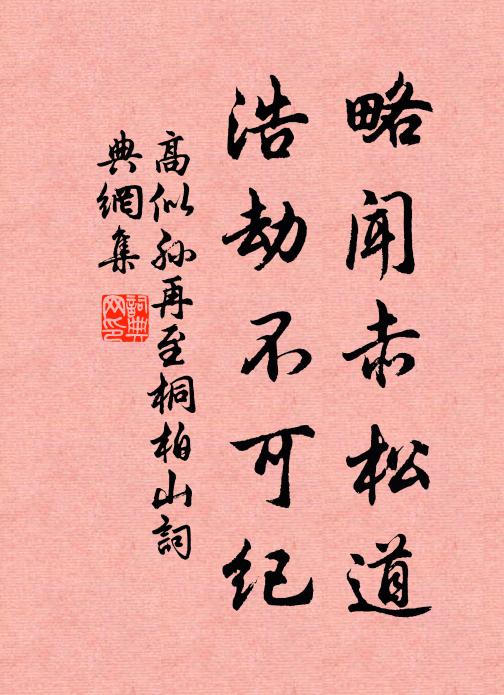 略闻赤松道
浩劫不可纪
高似孙再至桐柏山词
典網集
詞典網印